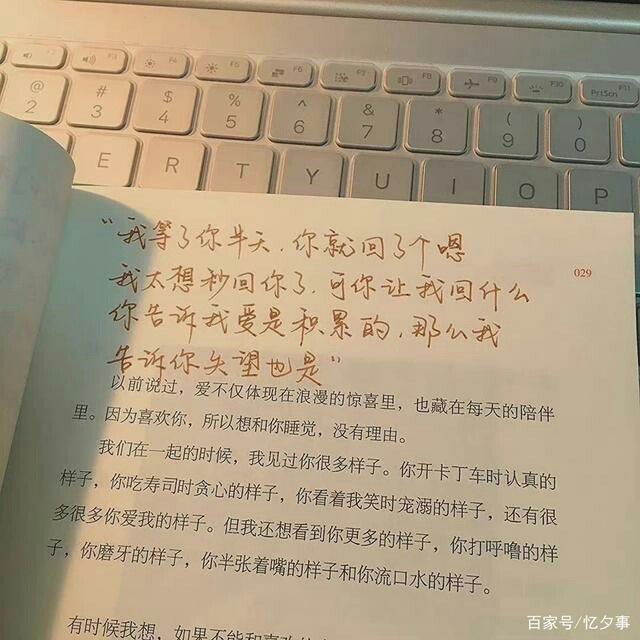 F1 F2 F3 F4 F5 F6 F7 F8 F9 F10 F11
PrtScn
@ # $ % ^ & * ( )
2 3 4 5 6 7 8 9 0
E R T Y U I O P
029
“我等了你半天,你就回了个嗯
我太想秒回你了,可你让我回什么
你告诉我爱是积累的,那么我
告诉你失望也是”
以前说过，爱不仅体现在浪漫的惊喜里，也藏在每天的陪伴
里。因为喜欢你，所以想和你睡觉，没有理由。
我们在一起的时候，我见过你很多样子。你开卡丁车时认真的
样子，你吃寿司时贪心的样子，你看着我笑时宠溺的样子，还有很
多很多你爱我的样子。但我还想看到你更多的样子，你打呼噜的样
子，你磨牙的样子，你半张着嘴的样子和你流口水的样子。
有时候我想，如果不能和喜欢的
百家号/忆夕事